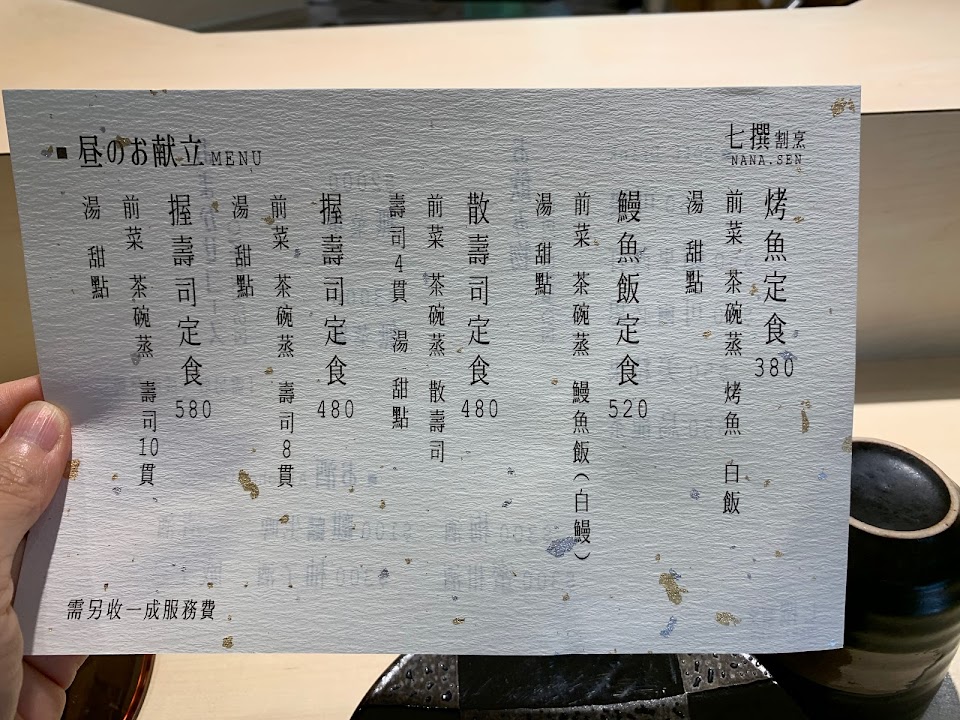 昼のお献立 MENU
七撰割烹
NANA.SEN
烤魚定食 380
前菜 茶碗蒸 烤魚 白飯
湯 甜點
鰻魚飯定食 520
前菜 茶碗蒸 鰻魚飯(白鰻)
湯 甜點
散壽司定食 480
前菜 茶碗蒸 散壽司
壽司4貫 湯 甜點
握壽司定食 480
前菜 茶碗蒸 壽司8貫
湯 甜點
握壽司定食 580
前菜 茶碗蒸 壽司10貫
湯 甜點
需另收一成服務費